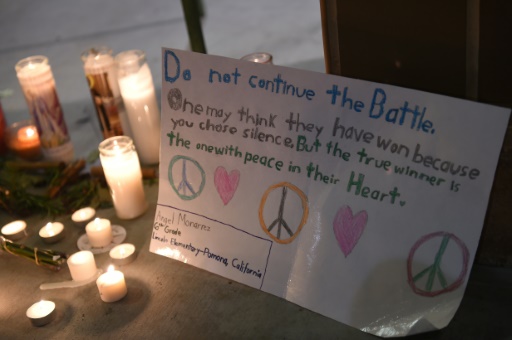 Do not continue the Battle.
One may think they have won because
you chose silence. But the true winner is
the one with peace in their Heart.
Angel
6th Grade
Lincoln Elementary-Pomona, California